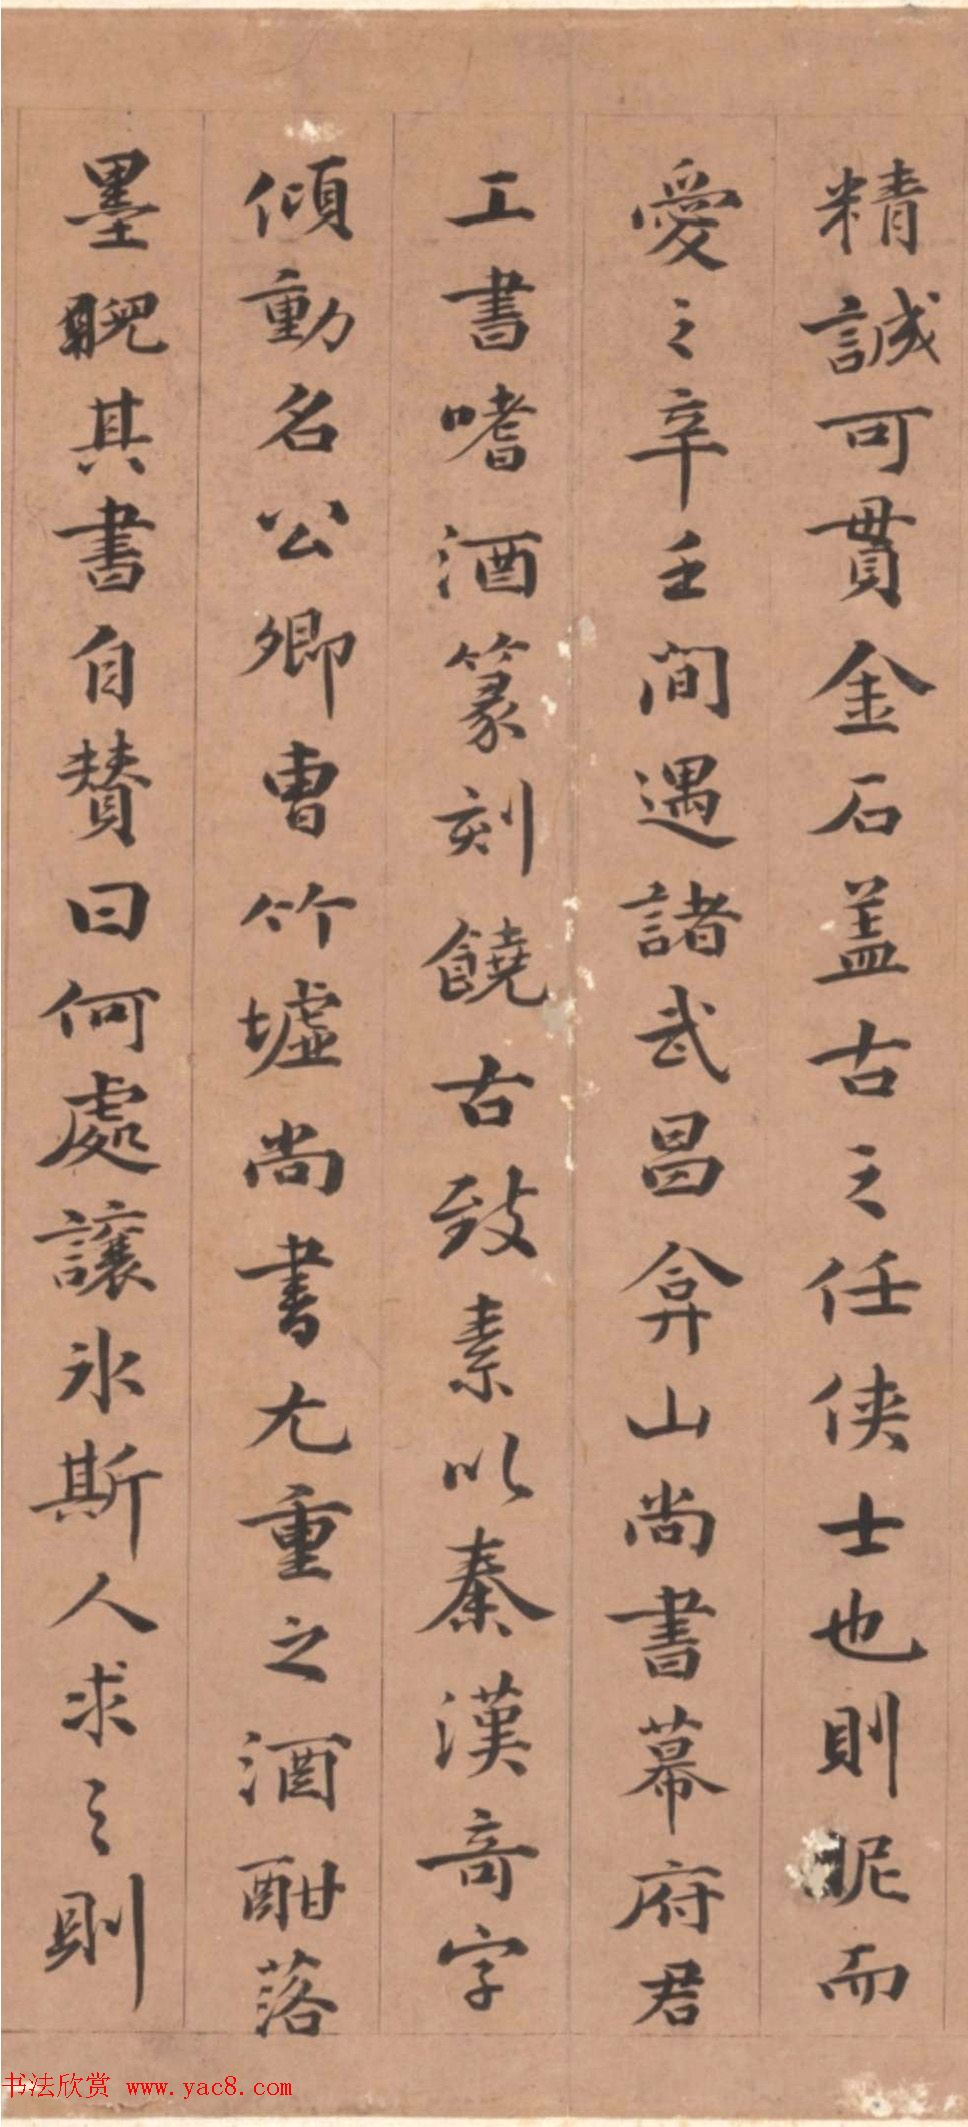 精誠可貫金石盖古之任俠士也則昵而
愛之辛壬間遇諸武昌弇山尚書幕府君
工書嗜酒篆刻饒古致素以秦漢竒字
傾動名公卿曹竹墟尚書尤重之酒酣落
墨睨其書自賛曰何處讓氷斯人求之則
书法欣赏 www.yac8.com